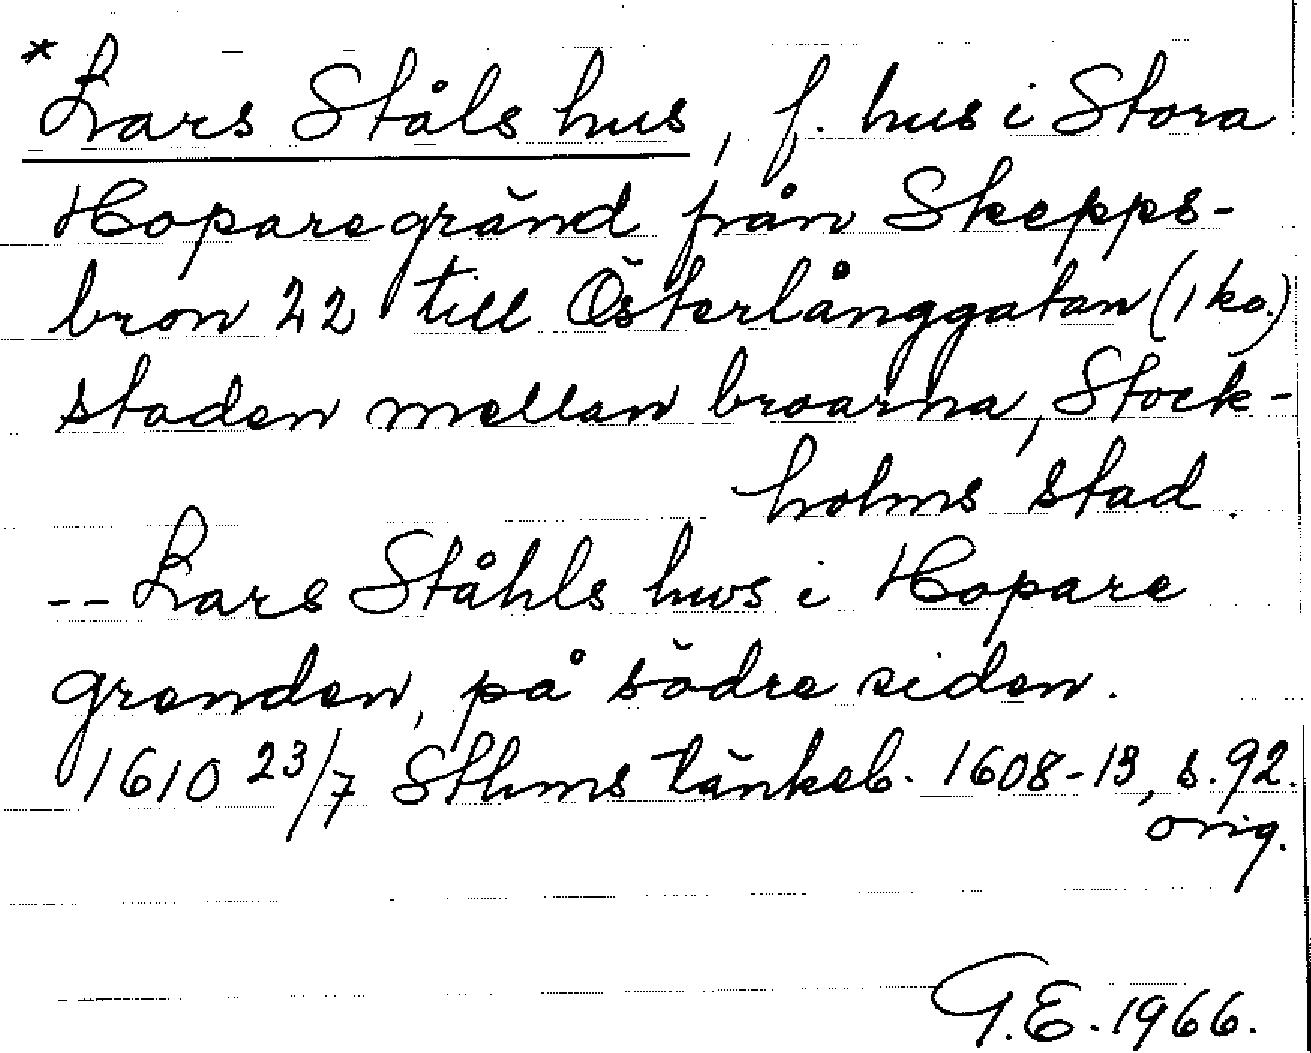 * Lars Ståls hus, f. hus i Stora
Hoparegränd från Skepps-
bron 22 till Österlånggatan (1 ka.)
staden mellan broarna, Stock-
holms stad.
-- Lars Ståhls hws i Hopare
grenden, på södre siden.
1610 23/7 Sthms tänkeb. 1608-13, s. 92.
orig.
G.E. 1966.